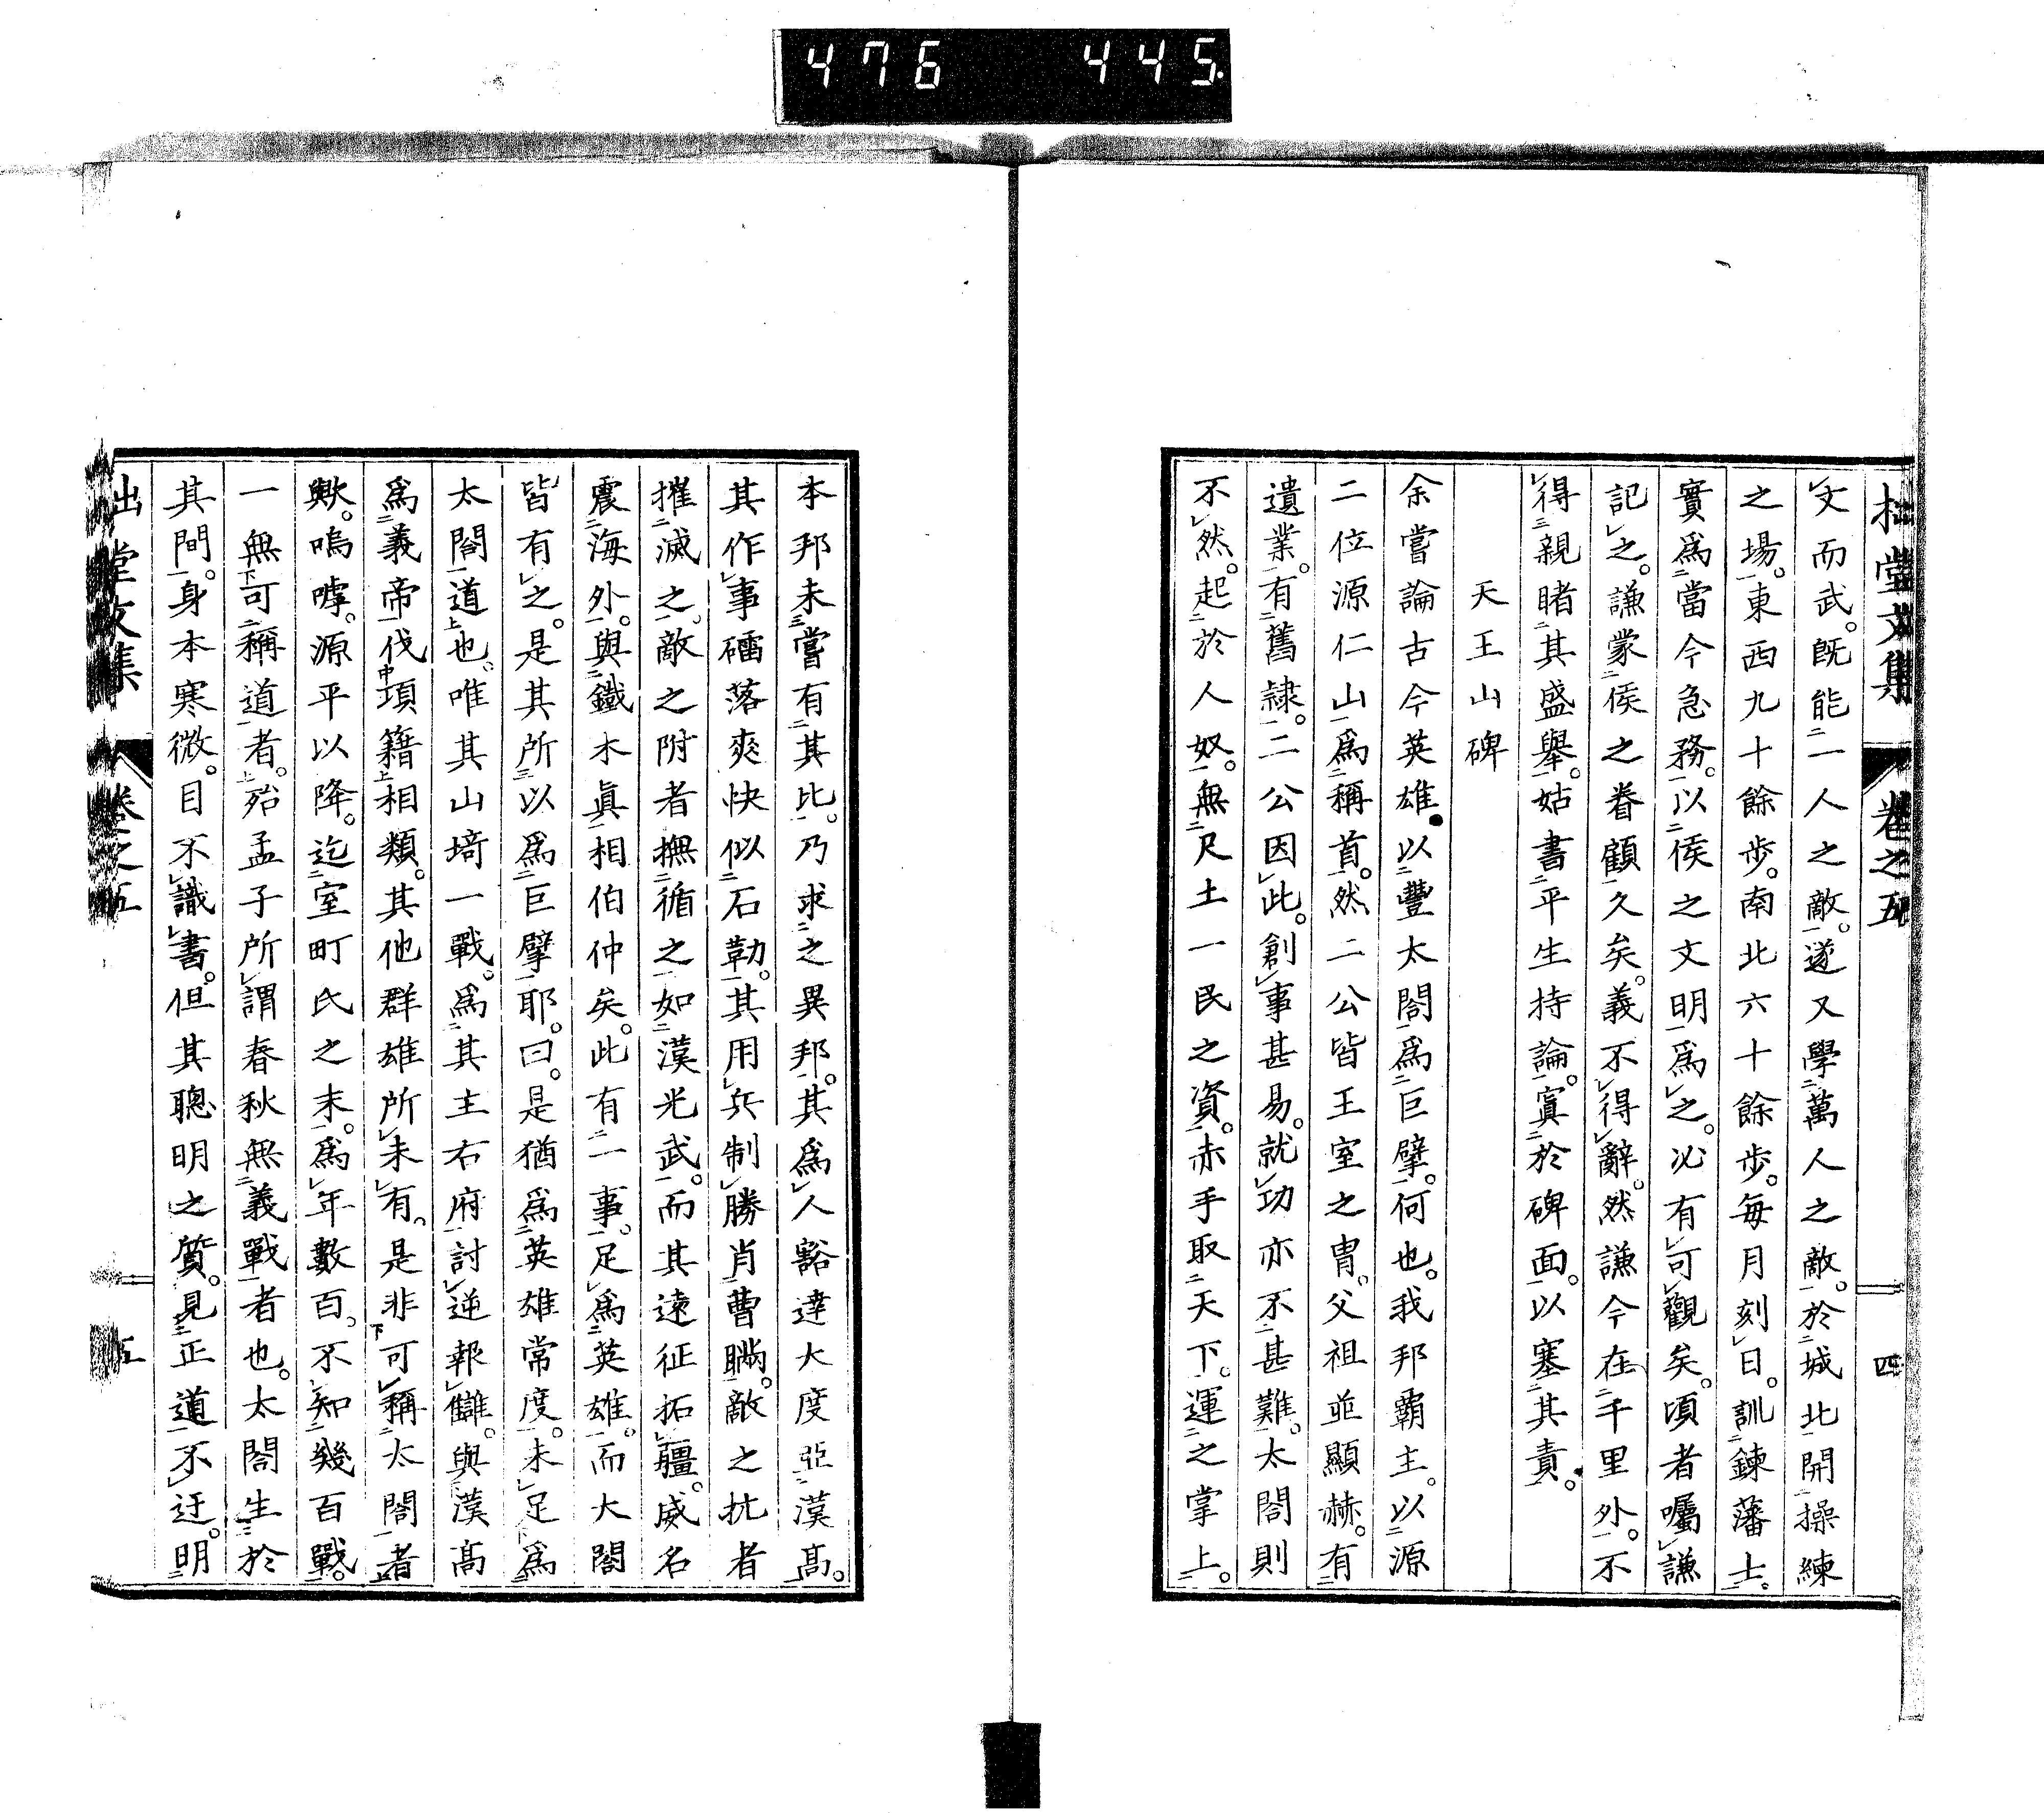 476 445.
松堂文集 卷之五 四
文而武。既能一人之敵。遂又學萬人之敵。於城北開操練
之場。東西九十餘步。南北六十餘步。每月刻日。訓鍊藩士。
實爲當今急務。以侯之文明爲之。必有可觀矣。頃者囑謙
記之。謙蒙侯之眷顧久矣。義不得辭。然謙今在千里外。不
得親睹其盛舉。姑書平生持論。寘於碑面。以塞其責。
天王山碑
余嘗論古今英雄。以豐太閤爲巨擘。何也。我邦霸主。以源
二位源仁山爲稱首。然二公皆王室之胄。父祖並顯赫。有
遺業。有舊隷。二公因此。創事甚易。就功亦不甚難。太閤則
不然。起於人奴。無尺土一民之資。赤手取天下。運之掌上。
本邦未嘗有其比。乃求之異邦。其爲人豁達大度亞漢高。
其作事礌落爽快似石勒。其用兵制勝肖曹瞞。敵之抗者
摧滅之。敵之附者撫循之。如漢光武。而其遠征拓疆。威名
震海外。與鐵木眞相伯仲矣。此有一事。足爲英雄。而大閤
皆有之。是其所以爲巨擘耶。曰。是猶爲英雄常度。未足爲
太閤道也。唯其山埼一戰。爲其主右府討逆報讎。與漢高
爲義帝伐項籍相類。其他群雄所未有。是非可稱太閤者
歟。嗚嘑。源平以降。迄室町氏之末。爲年數百。不知幾百戰。
一無可稱道者。殆孟子所謂春秋無義戰者也。太閤生於
其間。身本寒微。目不識書。但其聰明之質。見正道不迂。明
堂文集 卷之五 五